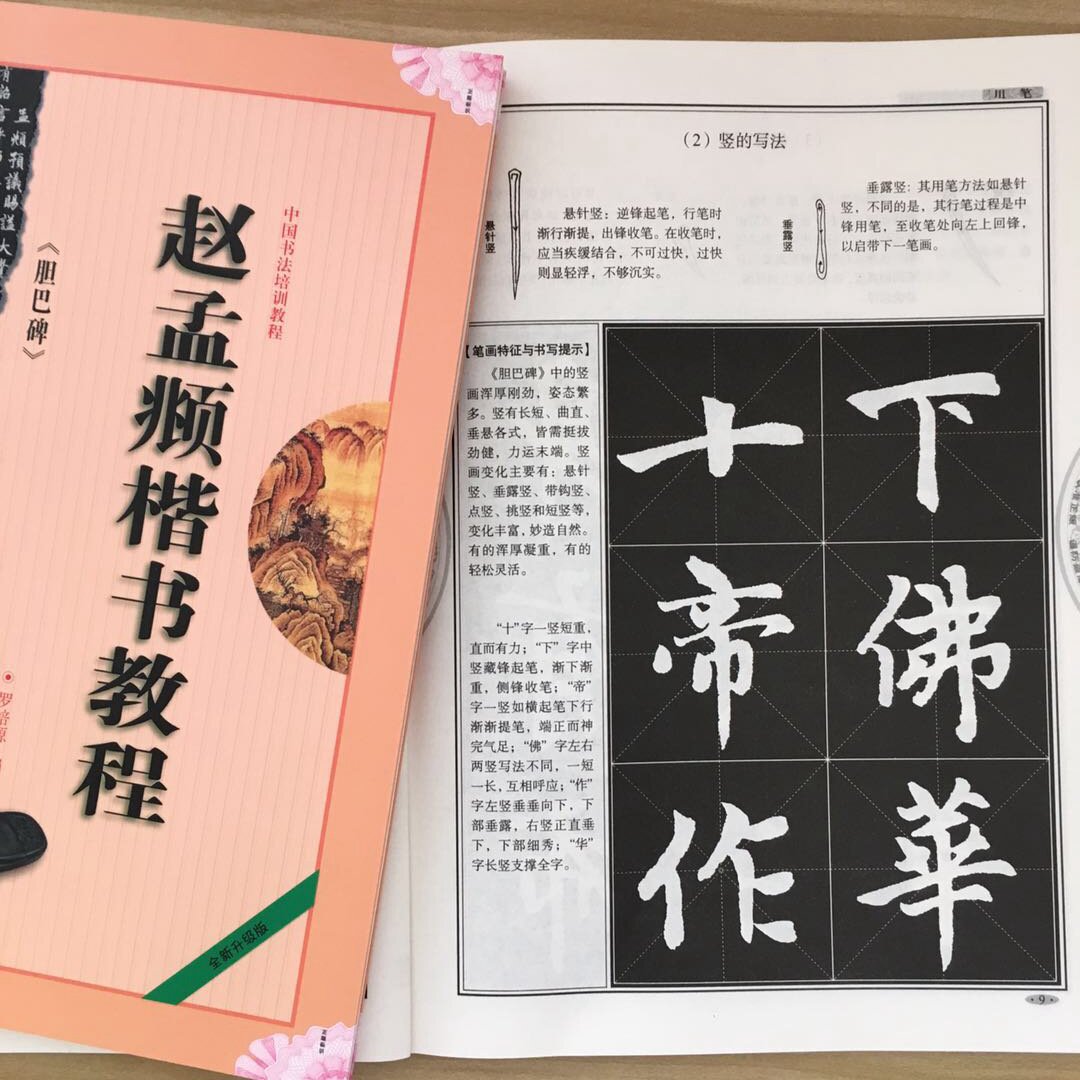 中国书法培训教程
赵孟頫楷书教程
《胆巴碑》
孟頫預議賜謚大
全新升级版
用笔
(2)竖的写法
悬针竖
悬针竖：逆锋起笔，行笔时
渐行渐提，出锋收笔。在收笔时，
应当疾缓结合，不可过快，过快
则显轻浮，不够沉实。
垂露竖
垂露竖：其用笔方法如悬针
竖，不同的是，其行笔过程是中
锋用笔，至收笔处向左上回锋，
以启带下一笔画。
【笔画特征与书写提示】
《胆巴碑》中的竖
画浑厚刚劲，姿态繁
多。竖有长短、曲直、
垂悬各式，皆需挺拔
劲健，力运末端。竖
画变化主要有：悬针
竖、垂露竖、带钩竖、
点竖、挑竖和短竖等，
变化丰富，妙造自然。
有的浑厚凝重，有的
轻松灵活。
“十”字一竖短重，
直而有力；“下”字中
竖藏锋起笔，渐下渐
重，侧锋收笔；“帝”
字一竖如横起笔下行
渐渐提笔，端正而神
完气足；“佛”字左右
两竖写法不同，一短
一长，互相呼应；“作”
字左竖垂垂向下，下
部垂露，右竖正直垂
下，下部细秀；“华”
字长竖支撑全字。
下佛華
十帝作
9